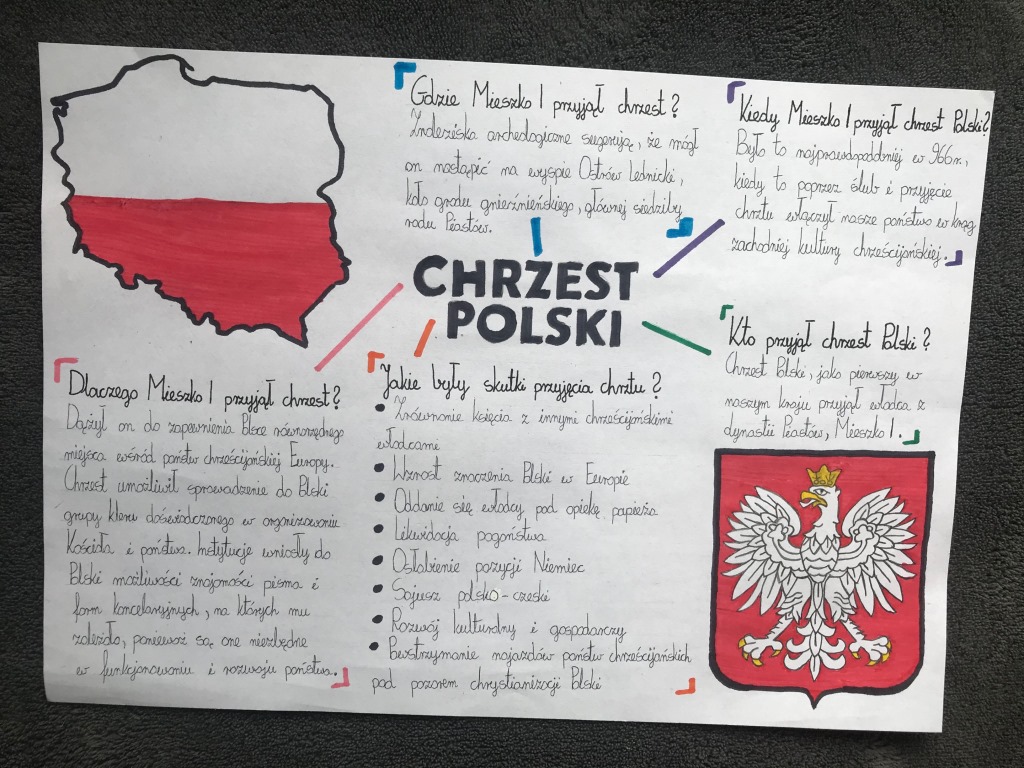 Gdzie Mieszko I przyjął chrzest?
Znaleziska archeologiczne sugerują, że mógł
on nastąpić na wyspie Ostrów Lednicki,
koło grodu gnieźnieńskiego, głównej siedziby
rodu Piastów.
Kiedy Mieszko I przyjął chrzest Polski?
Było to najprawdopoddniej w 966r.,
kiedy to poprzez ślub i przyjęcie
chrztu włączył nasze państwo w krąg
zachodniej kultury chrześcijańskiej.
CHRZEST
POLSKI
Kto przyjął chrzest Polski?
Chrzest Polski, jako pierwszy w
naszym kraju przyjął władca z
dynastii Piastów, Mieszko I.
Dlaczego Mieszko I przyjął chrzest?
Dążył on do zapewnienia Polsce równorzędnego
miejsca wśród państw chrześcijańskiej Europy.
Chrzest umożliwił sprowadzenie do Polski
grupy kleru doświadczonego w organizowaniu
Kościoła i państwa. Instytucje wniosły do
Polski możliwości znajomości pisma i
form kancelaryjnych, na których mu
zależało, ponieważ są one niezbędne
w funkcjonowaniu i rozwoju państwa.
Jakie były skutki przyjęcia chrztu?
• Zrównanie księcia z innymi chrześcijańskimi
władcami
• Wzrost znaczenia Polski w Europie
• Oddanie się władcy pod opiekę papieża
• Likwidacja pogaństwa
• Osłabienie pozycji Niemiec
• Sojusz polsko-czeski
• Rozwój kulturalny i gospodarczy
• Powstrzymanie najazdów państw chrześcijańskich
pod pozorem chrystianizacji Polski